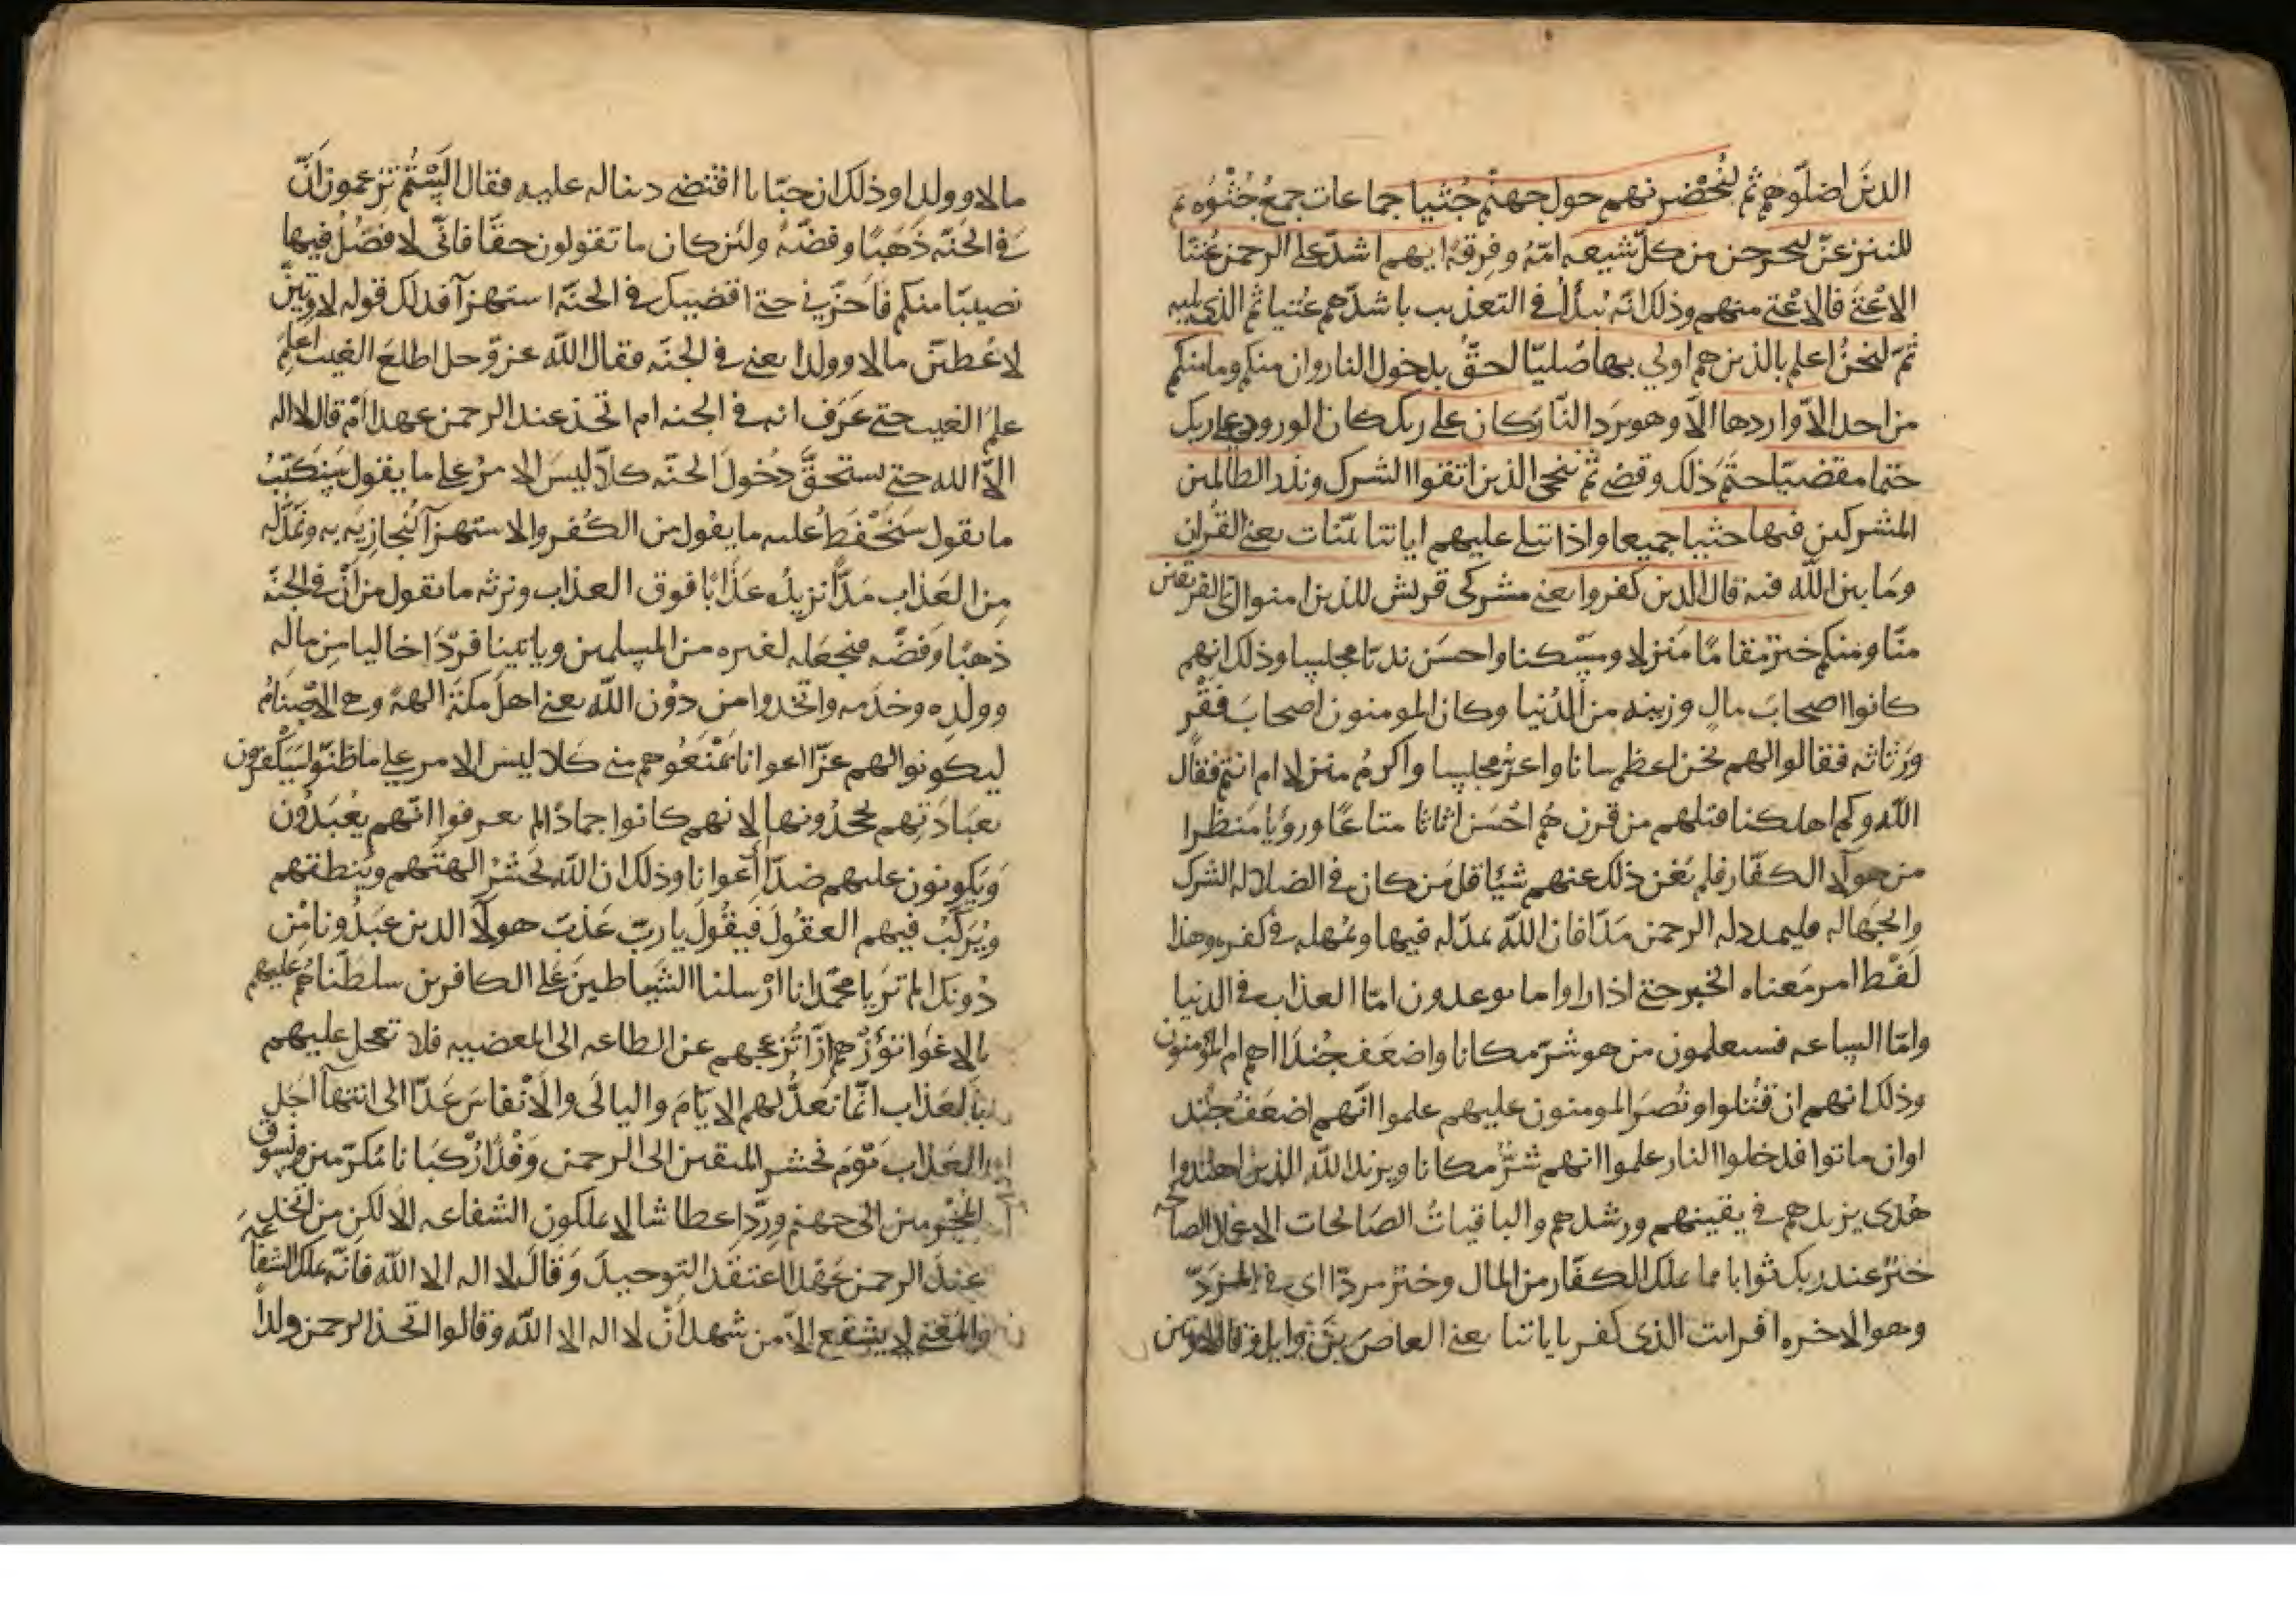 الذين اضلوهم ثم لنحضرنهم حول جهنم جثيا جماعات جمع جثوه ثم
لننزعن لنخرجن من كل شيعه امه وفرقه ايهم اشد على الرحمن عتيا
الاعتى فالاعتى منهم وذلك انه يبدأ في التعذيب باشدهم عتيا ثم الذي يليه
ثم لنحن اعلم بالذين هم اولي بها صليا لحق بدخول النار وان منكم وما منكم
من احد الا واردها الا وهو يرد النار كان على ربك كان الورود على ربك
حتما مقضيا حتم ذلك وقضى ثم ننجي الذين اتقوا الشرك ونذر الظالمين
المشركين فيها جثيا جميعا واذا تتلى عليهم اياتنا بينات يعني القرآن
وما بين الله فيه قال الذين كفروا يعني مشركي قريش للذين امنوا اي الفريقين
منا ومنكم خير مقاما منزلا ومسكنا واحسن نديا مجلسا وذلك انهم
كانوا اصحاب مال وزينه من الدنيا وكان المومنون اصحاب فقر
ورثاثه فقالوا لهم نحن اعظم شانا واعز مجلسا واكرم منزلا ام انتم فقال
الله وكم اهلكنا قبلهم من قرن هم احسن اثاثا متاعا ورؤيا منظرا
من هولآ الكفار فلم يغن ذلك عنهم شيئا قل من كان في الضلاله الشرك
والجهاله فليمدد له الرحمن مدا فان الله يمد له فيها ويمهله في كفره وهذا
لفظ امر معناه الخبر حتى اذا راوا ما يوعدون اما العذاب في الدنيا
واما الساعه فسيعلمون من هو شر مكانا واضعف جندا اهم ام المؤمنون
وذلك انهم ان قتلوا ونصر المومنون عليهم علموا انهم اضعف جند
اوان ماتوا فدخلوا النار علموا انهم شر مكانا ويزيد الله الذين اهتدوا
هدى يزيدهم في يقينهم ورشدهم والباقيات الصالحات الاعمال الصالحه
خير عند ربك ثوابا مما يملك الكفار من المال وخير مردا اي في المرد
وهو الاخره افرايت الذي كفر باياتنا يعني العاص بن وايل وقال لاوتين
مالا وولدا وذلك ان خبابا اقتضى دينا له عليه فقال الستم تزعمون ان
في الجنه ذهبا وفضه ولئن كان ما تقولون حقا فاني لافضل فيها
نصيبا منكم فاخرني حتى اقضيك في الجنه استهزآ فذلك قوله لاوتين
لاعطين مالا وولدا يعني في الجنه فقال الله عز وجل اطلع الغيب اعلم
علم الغيب حتى عرف انه في الجنه ام اتخذ عند الرحمن عهدا ام قال لا اله
الا الله حتى يستحق دخول الجنه كلا ليس الامر على ما يقول سنكتب
ما يقول سنحفظ عليه ما يقول من الكفر والاستهزآ لنجازيه به ونمد له
من العذاب مدا نزيده عذابا فوق العذاب ونرثه ما يقول من ان في الجنه
ذهبا وفضه فنجعله لغيره من المسلمين وياتينا فردا خاليا من ماله
وولده وخدمه واتخذوا من دون الله يعني اهل مكه الهة وهي الاصنام
ليكونوا لهم عزا اعوانا يمنعوهم مني كلا ليس الامر على ما ظنوا سيكفرون
بعبادتهم يجحدونها لانهم كانوا جمادا لم يعرفوا انهم يعبدون
ويكونون عليهم ضدا اعوانا وذلك ان الله يحشر الهتهم وينطقهم
ويركب فيهم العقول فيقول يا رب عذب هولآ الذين عبدونا من
دونك الم تر يا محمد انا ارسلنا الشياطين على الكافرين سلطناهم عليهم
بالاغوا تؤزهم ازا تزعجهم عن الطاعه الى المعصيه فلا تعجل عليهم
بالعذاب انما نعد لهم الايام والليالى والانفاس عدا الى انتهآ اجل
العذاب يوم نحشر المتقين الى الرحمن وفدا ركبانا مكرمين ونسوق
المجرمين الى جهنم وردا عطاشا لا يملكون الشفاعه الا لكن من اتخذ
عند الرحمن عهدا اعتقد التوحيد وقال لا اله الا الله فانه يملك الشفاعه
والمعنى لا يشفع الا من شهد ان لا اله الا الله وقالوا اتخذ الرحمن ولدا